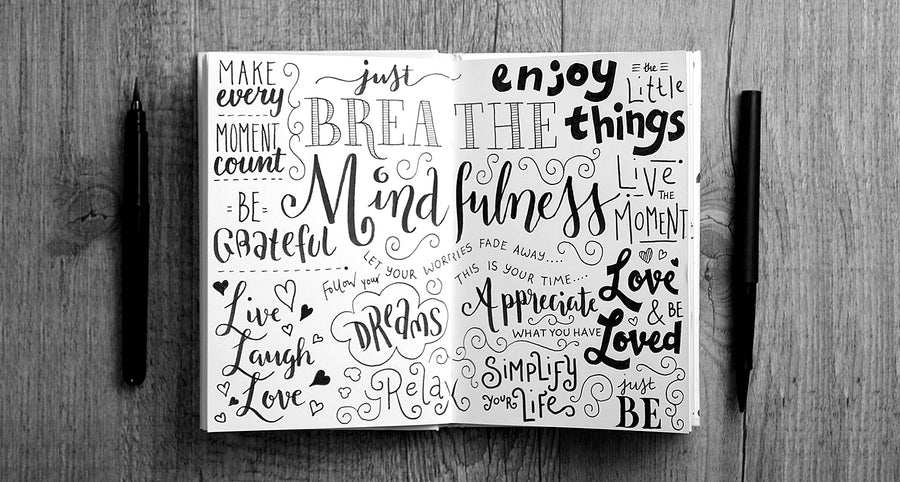 MAKE
every
MOMENT
count
=BE=
Grateful
Live
Laugh
Love
just
BREATHE
Mindfulness
LET YOUR WORRIES FADE AWAY....
THIS IS YOUR TIME....
Follow your
DREAMS
Relax
enjoy
the
Little
things
LIVE
THE
MOMENT
Appreciate
WHAT YOU HAVE
SIMPLIFY
YOUR LIFE
Love
& BE
Loved
just
BE